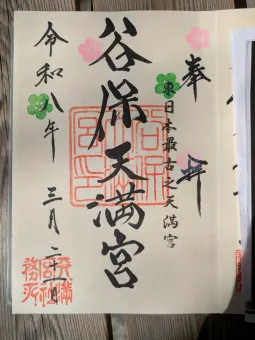 奉拝
東日本最古之天満宮
谷保天満宮
令和八年
三月二十一日
天満宮社務所